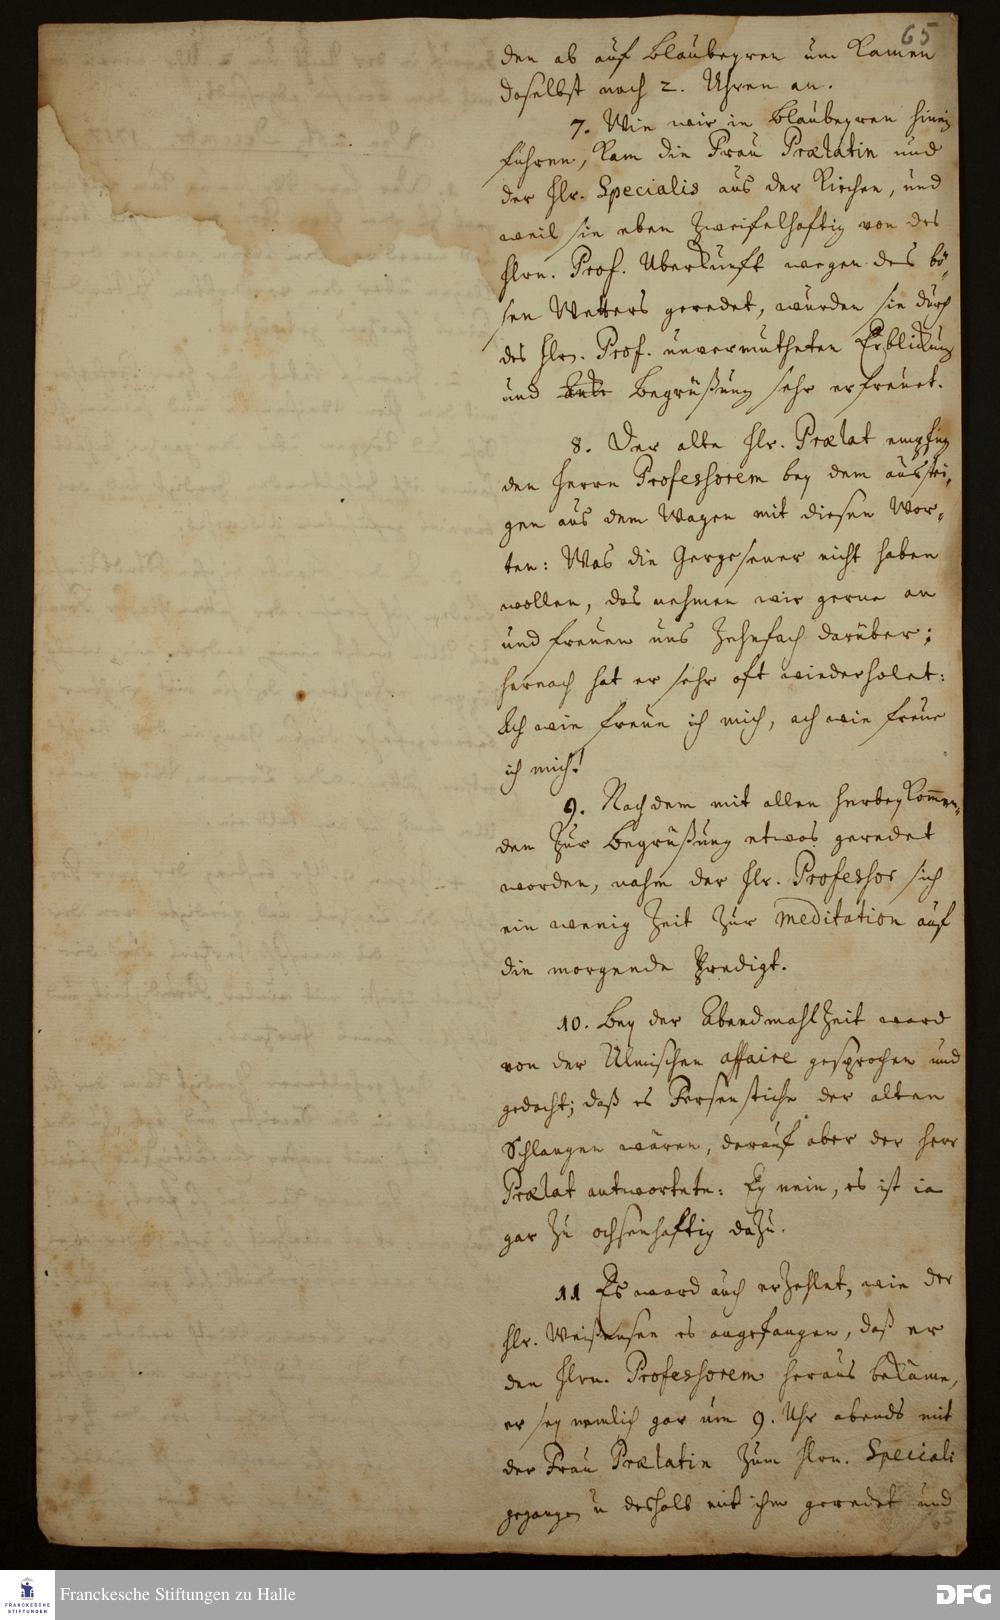 65
den ab auf Blaubeyren um kamen
daselbst nach 2. Uhren an.
7. Wie wir in Blaubeyren hinein
führen, kam die Frau Prælatin und
der Hlr. Specialis aus der Kirchen, und
weil sie eben zweifelhafftig von des
Hlrn. Prof. Uberkunfft wegen des bö-
sen Wetters geredet, wurden sie durch
des Hlrn. Prof. unvermutheten Erblickung
und Begrüßung sehr erfreuet.
8. Der alte Hlr. Prælat empfing
den Herrn Professorem bey dem ausstei-
gen aus dem Wagen mit diesen Wor-
ten: Was die Gergesener nicht haben
wollen, das nehmen wir gerne an
und freuen uns zehnfach darüber;
hernach hat er sehr oft wiederholet:
Ach wie freue ich mich, ach wie freue
ich mich!
9. Nachdem mit allen herbeykommen-
den zur Begrüßung etwas geredet
worden, nahm der Hlr. Professor sich
ein wenig Zeit zur meditation auf
die morgende Predigt.
10. Bey der Abendmahlzeit ward
von der Ulmischen affaire gesprochen und
gedacht; daß es Fersenstiche der alten
Schlangen wären, darauf aber der Herr
Prælat antwortete: Ey nein, es ist ia
gar zu ochsenhafftig dazu.
11 Es ward auch erzehlet, wie der
Hlr. Weißensee es angefangen, daß er
den Hlrn. Professorem heraus bekäme,
er sey nemlich gar um 9. Uhr abends mit
der Frau Prælatin zum Hlrn. Speciali
gegangen u deshalb mit ihm geredet und
65
FRANCKESCHE
STIFTUNGEN
Franckesche Stiftungen zu Halle
DFG